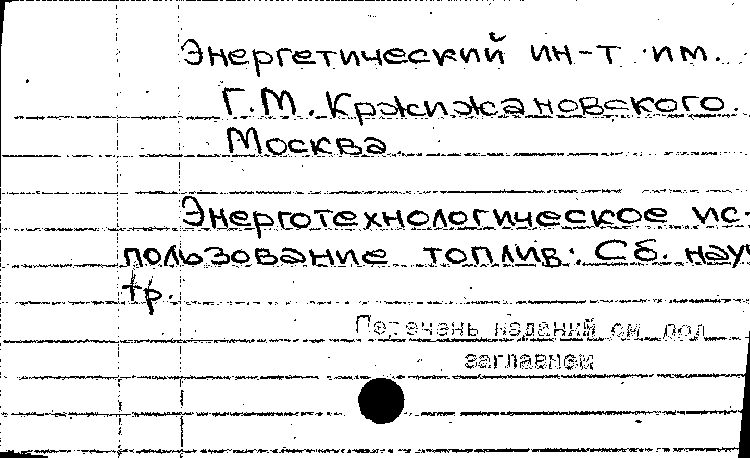 Энергетический ин-т им.
Г.М. Кржижановского.
Москва.
Энерготехнологическое ис-
пользование топлив: Сб. науч
тр.
Перечень изданий см. под
заглавием